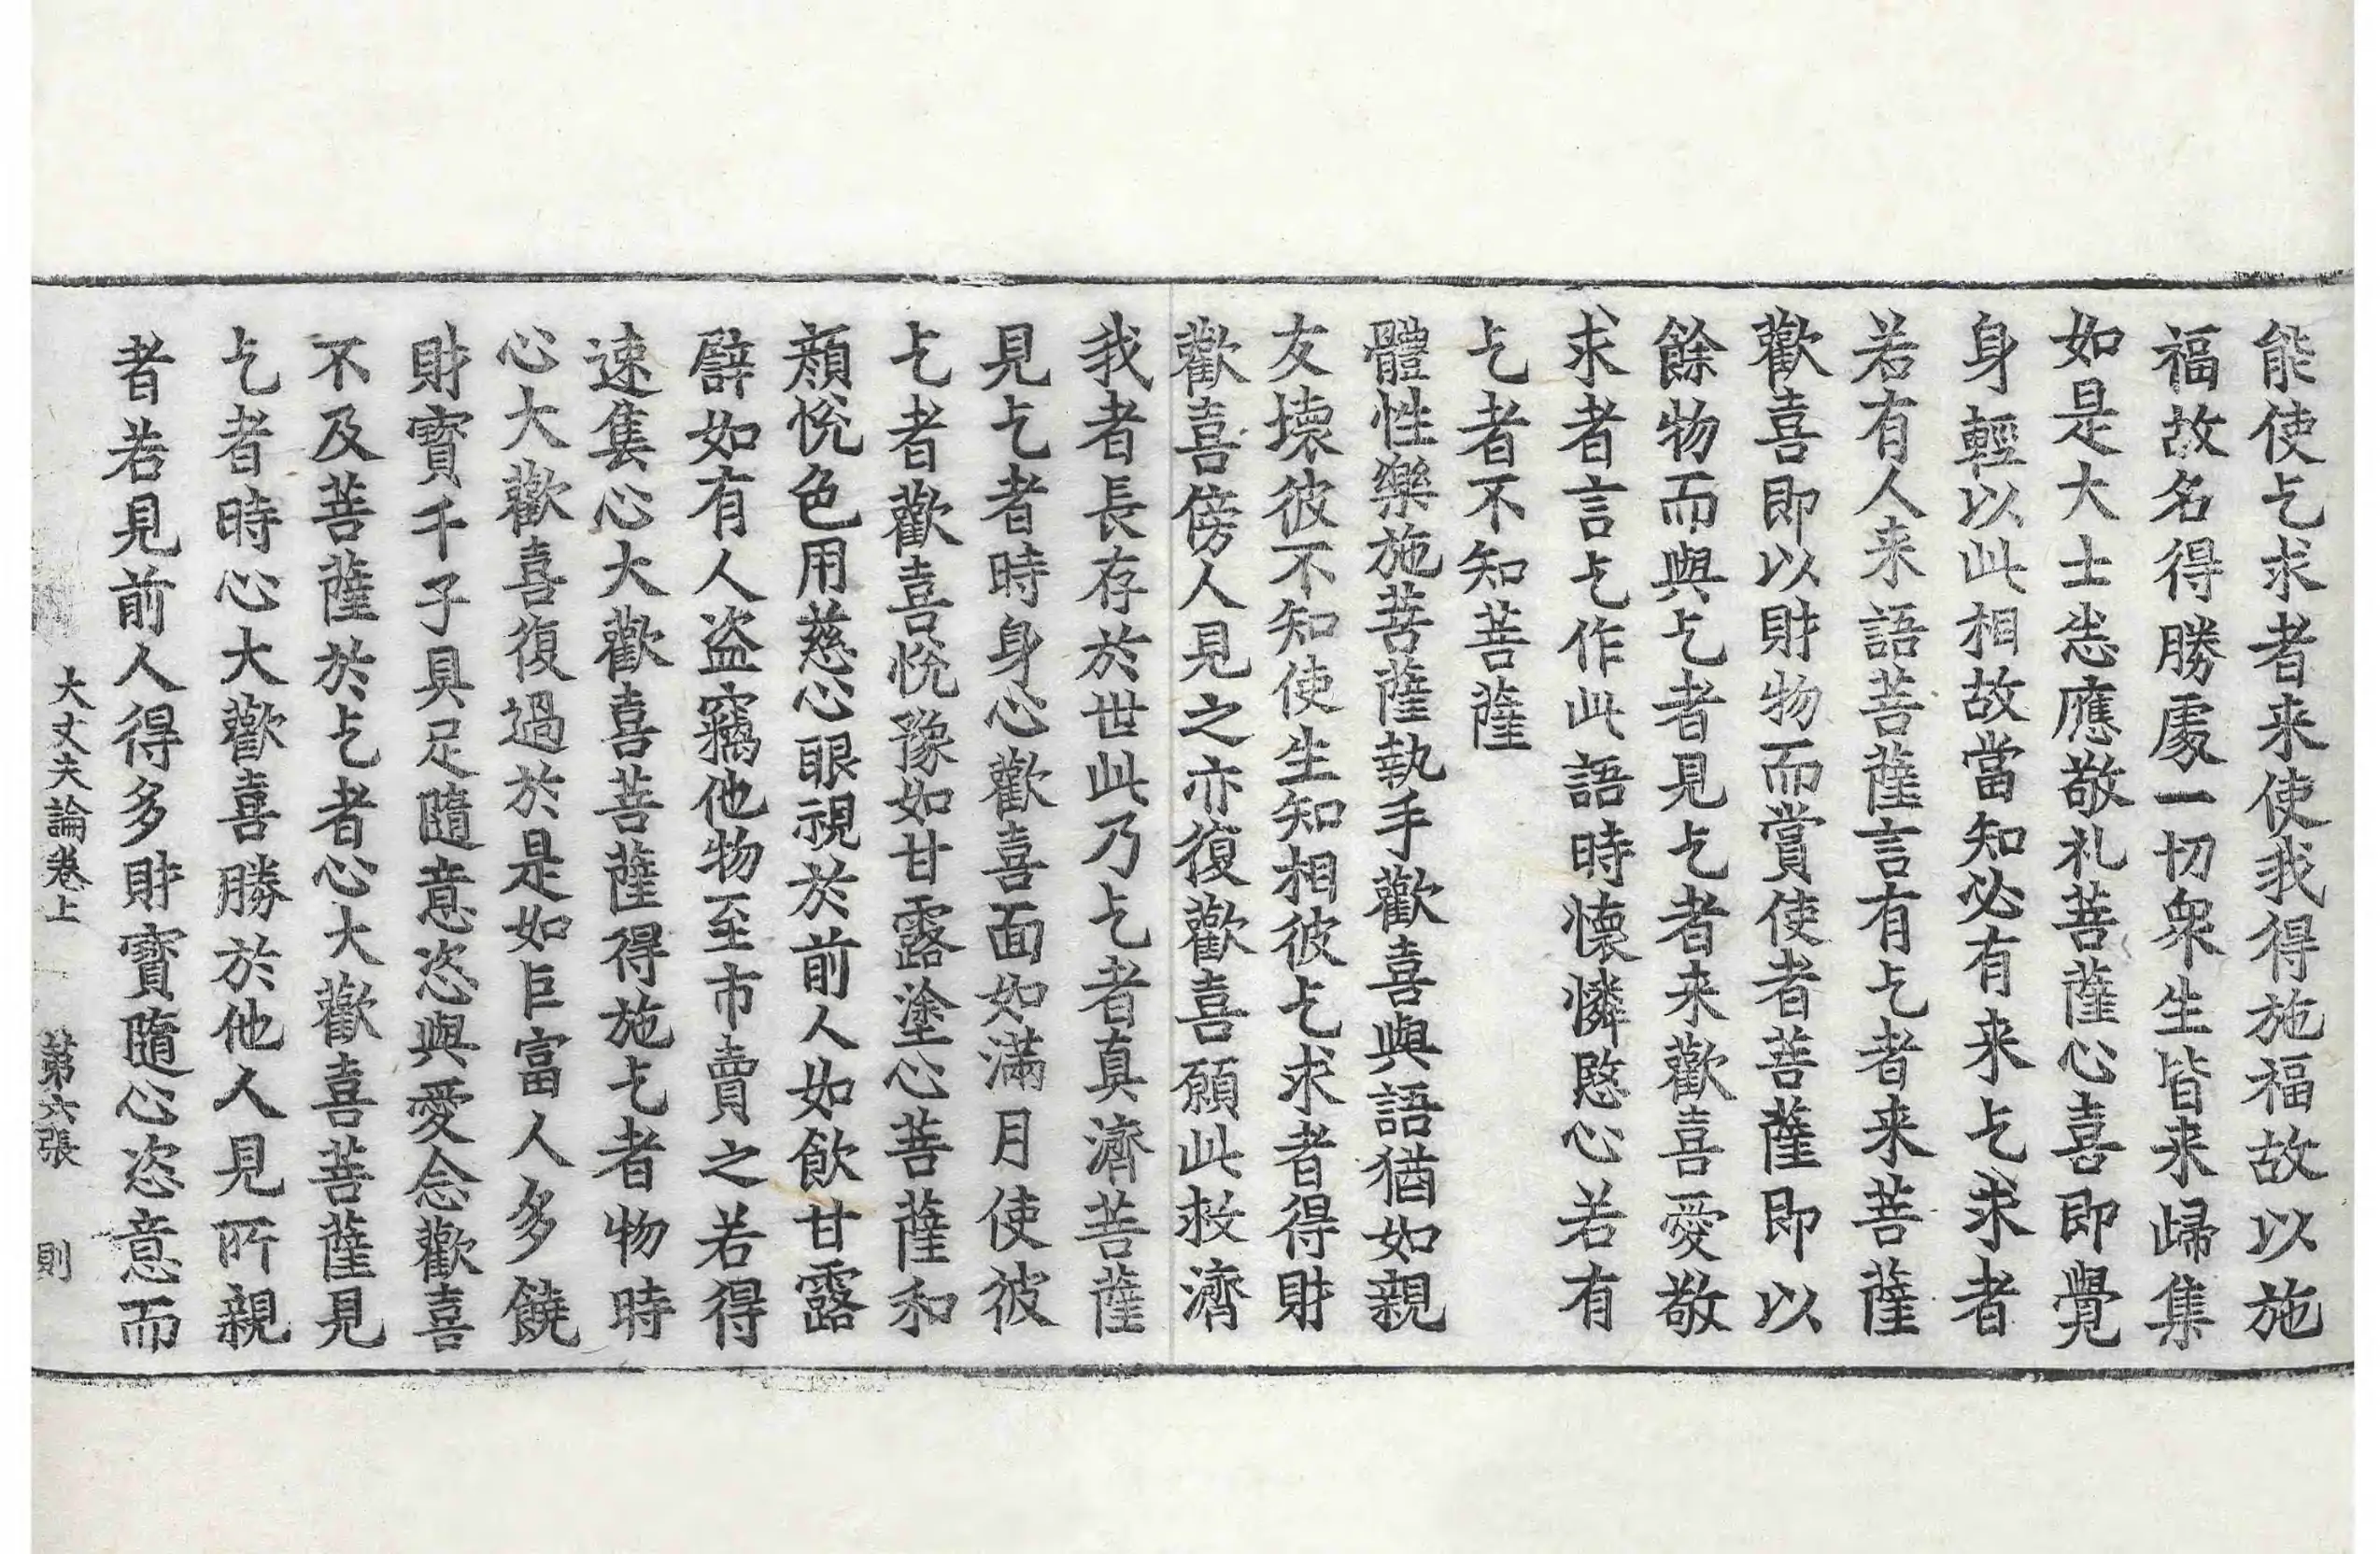 能使乞求者来使我得施福故以施
福故名得勝處一切衆生皆来歸集
如是大士悉應敬礼菩薩心喜即覺
身輕以此相故當知必有来乞求者
若有人来語菩薩言有乞者来菩薩
歡喜即以財物而賞使者菩薩即以
餘物而與乞者見乞者来歡喜愛敬
求者言乞作此語時懷憐愍心若有
乞者不知菩薩
體性樂施菩薩執手歡喜與語猶如親
友壞彼不知使生知相彼乞求者得財
歡喜傍人見之亦復歡喜願此救濟
我者長存於世此乃乞者真濟菩薩
見乞者時身心歡喜面如滿月使彼
乞者歡喜悅豫如甘露塗心菩薩和
顔悅色用慈心眼視於前人如飲甘露
譬如有人盗竊他物至市賣之若得
速售心大歡喜菩薩得施乞者物時
心大歡喜復過於是如巨富人多饒
財寶千子具足隨意恣與愛念歡喜
不及菩薩於乞者心大歡喜菩薩見
乞者時心大歡喜勝於他人見所親
者若見前人得多財寶隨心恣意而
大丈夫論卷上 第六張 則